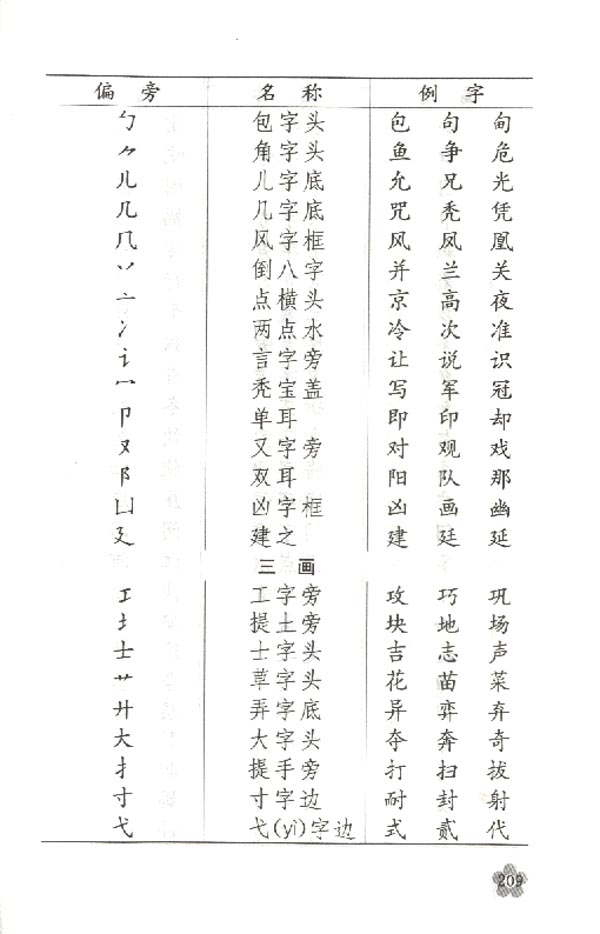 偏旁 名称 例字
勹 包字头 包 句 甸
⺈ 角字头 鱼 争 危
儿 儿字底 允 兄 光
几 几字底 咒 秃 凭
几 风字框 风 凤 凰
丷 倒八字 并 兰 关
亠 点横头 京 高 夜
冫 两点水 冷 次 准
讠 言字旁 让 说 识
冖 秃宝盖 写 军 冠
卩 单耳 即 印 却
又 又字旁 对 观 戏
阝 双耳 阳 队 那
凵 凶字框 凶 画 幽
廴 建之 建 廷 延
三画
工 工字旁 攻 巧 巩
土 提土旁 块 地 场
士 士字头 吉 志 声
艹 草字头 花 苗 菜
廾 弄字底 异 弈 弃
大 大字头 夺 奔 奇
扌 提手旁 打 扫 拔
寸 寸字边 耐 封 射
弋 弋(yì)字边 式 贰 代
209